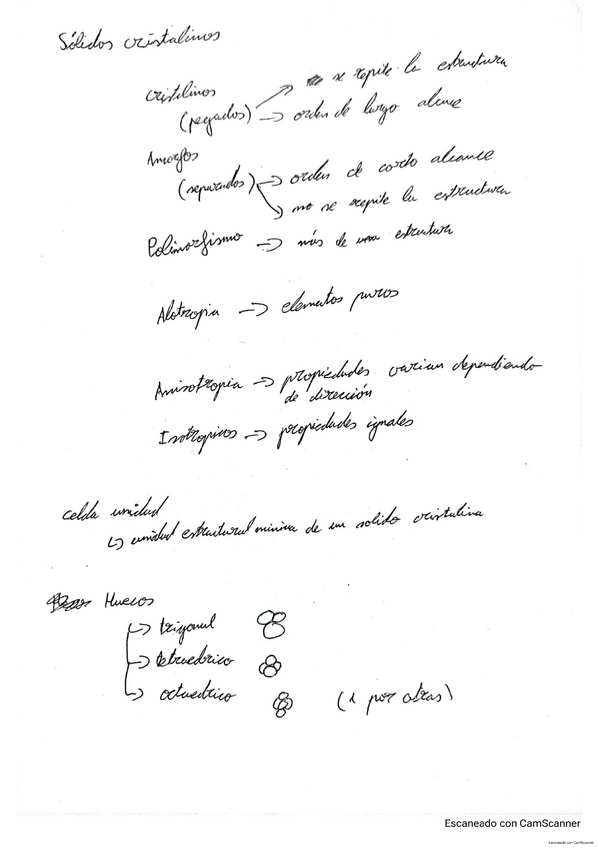 Sólidos cristalinos
cristalinos → se repite la estructura
(pegados) → orden de largo alcance
Amorfos
(separados) → orden de corto alcance
→ no se repite la estructura
Polimorfismo → más de una estrutura
Alotropia → elementos puros
Anisotropia → propiedades varian dependiendo
de dirección
Isotropicos → propiedades iguales
celda unidad
↳ unidad estructural minima de un solido cristalina
Huecos
→ trigonal
→ tetraedrico
→ octaedrico (1 por atras)
Escaneado con CamScanner
Escaneado con CamScanner